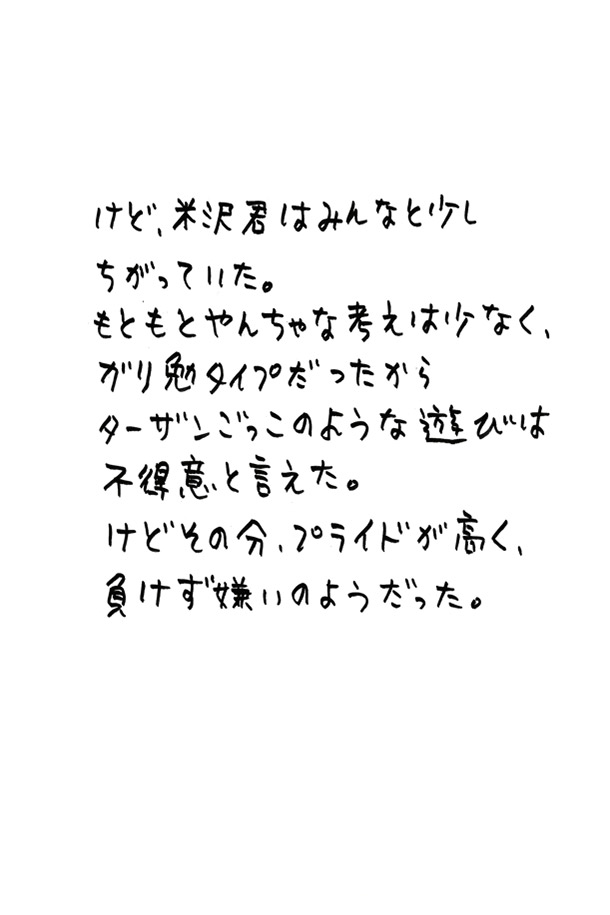 けど、米沢君はみんなと少し
ちがっていた。
もともとやんちゃな考えは少なく、
ガリ勉タイプだったから
ターザンごっこのような遊びは
不得意と言えた。
けどその分、プライドが高く、
負けず嫌いのようだった。